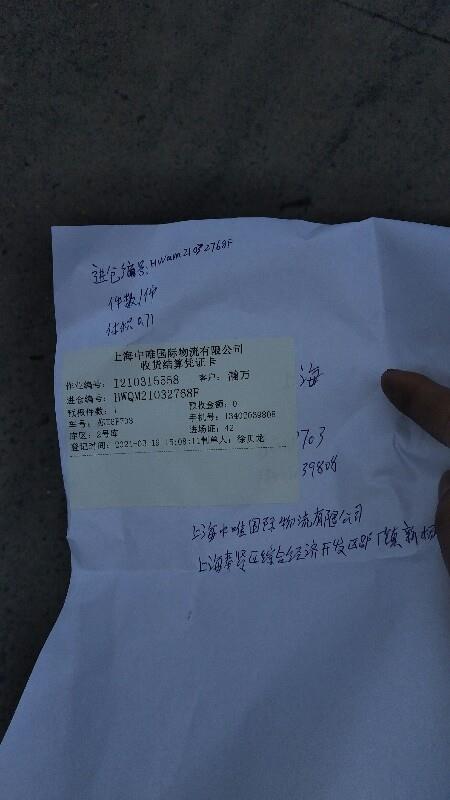 进仓编号:HWQM21032768F
件数1件
体积0.71
上海中唯国际物流有限公司
收货结算凭证卡
作业编号: I210315558 客户: 瀚万
进仓编号: HWQM21032768F
预报件数: 1 预收金额: 0
车号: 苏 手机号: 13402039808
库区: 2号库 进场证: 42
登记时间: 2021-03-19 15:08:11制单人: 徐贝龙
海
703
39808
上海中唯国际物流有限公司
上海奉贤区综合经济开发区邬镇新杨